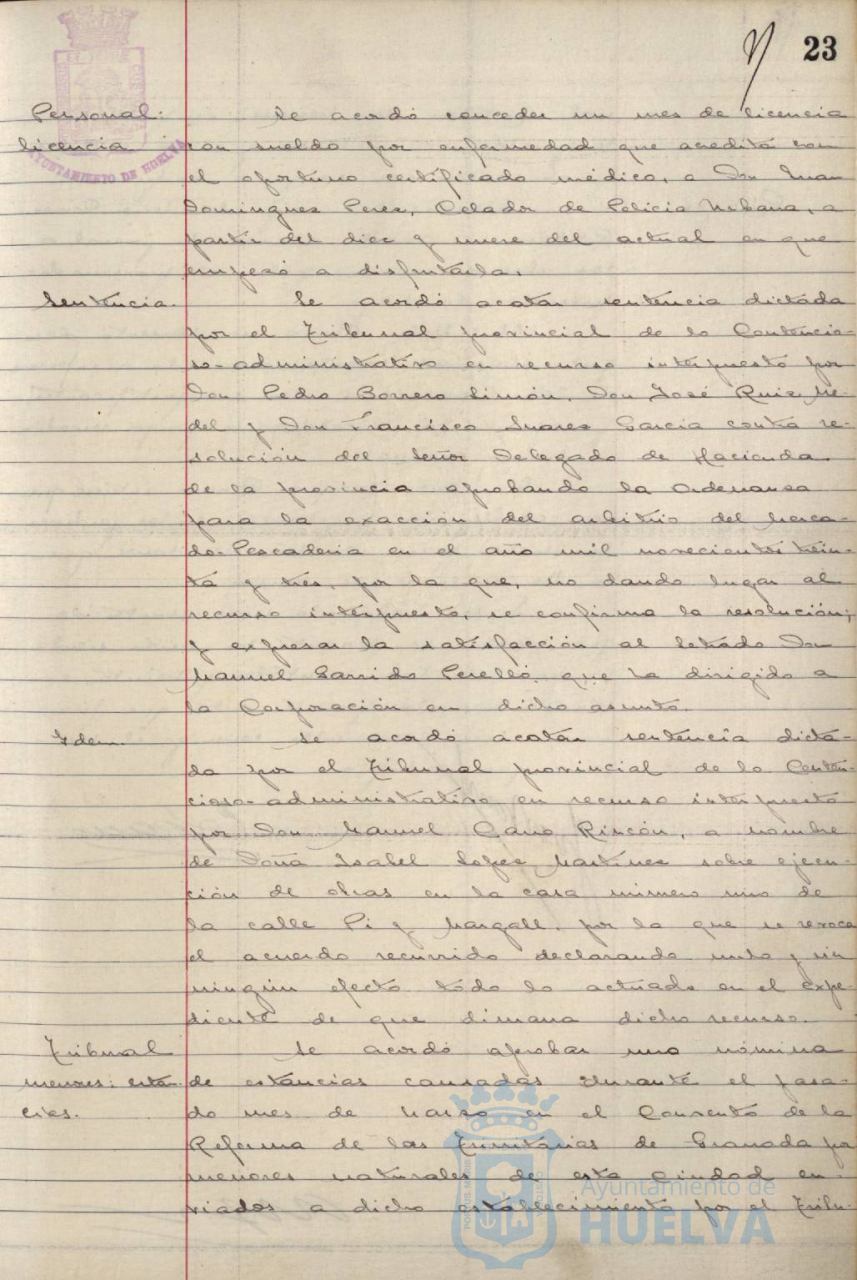 23
Personal:
licencia
AYUNTAMIENTO DE HUELVA
Se acordó conceder un mes de licencia
con sueldo por enfermedad que acredita con
el oportuno certificado médico, a Don Juan
Dominguez Perez, Celador de Policia Urbana, a
partir del diez y nueve del actual en que
empezó a disfrutarla.
Sentencia.
Se acordó acatar sentencia dictada
por el Tribunal provincial de lo Contencio-
so-administrativo en recurso interpuesto por
Don Pedro Borrero Limón, Don José Ruiz Me-
del y Don Francisco Suarez Garcia contra re-
solución del Señor Delegado de Hacienda
de la provincia aprobando la Ordenanza
para la exacción del arbitrio del Merca-
do-Pescaderia en el año mil novecientos trein-
ta y tres, por la que, no dando lugar al
recurso interpuesto, se confirma la resolución;
y expresar la satisfacción al letrado Don
Manuel Garrido Perelló que ha dirigido a
la Corporación en dicho asunto.
Idem.
Se acordó acatar sentencia dicta-
da por el Tribunal provincial de lo Conten-
cioso-administrativo en recurso interpuesto
por Don Manuel Cano Rincón, a nombre
de Doña Isabel Lopez Martinez sobre ejecu-
ción de obras en la casa número uno de
la calle Pi y Margall, por la que se revoca
el acuerdo recurrido declarando nulo y sin
ningún efecto todo lo actuado en el expe-
diente de que dimana dicho recurso.
Tribunal
menores: estan-
cias.
Se acordó aprobar una nómina
de estancias causadas durante el pasa-
do mes de Marzo en el Convento de la
Reforma de las Trinitarias de Granada por
menores naturales de esta Ciudad en-
viados a dicho establecimiento por el Tribu-
Ayuntamiento de
HUELVA